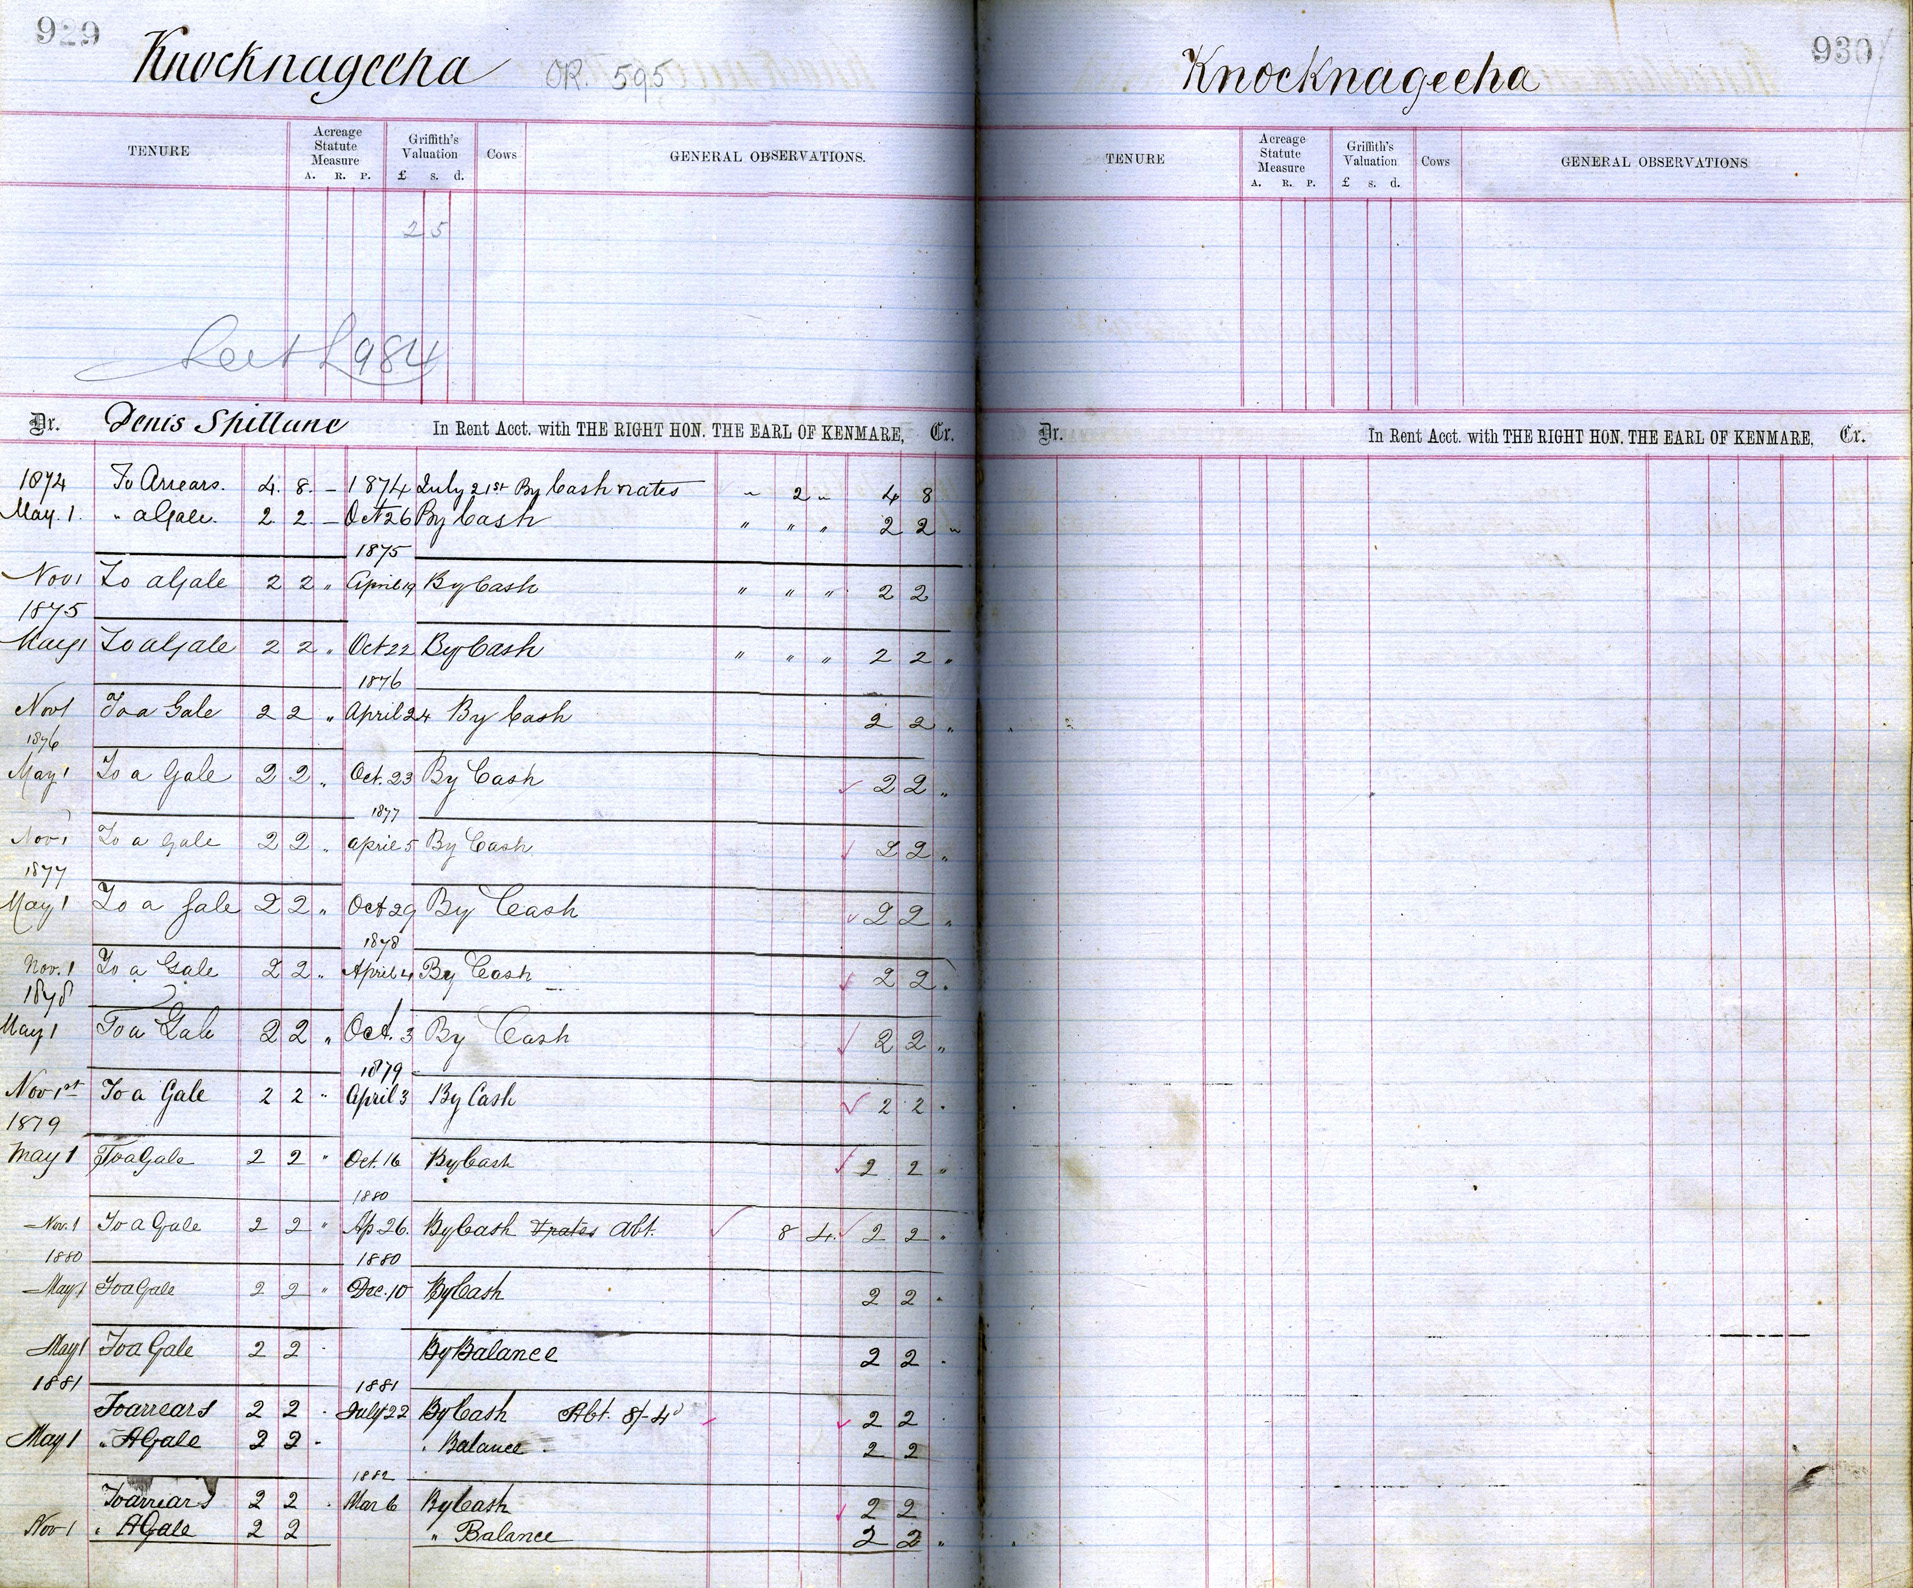 929
Knocknageeha OR. 595
TENURE
Acreage Statute Measure
A. R. P.
Griffith's Valuation
£ s. d.
Cows
GENERAL OBSERVATIONS.
2 5
984
Dr. Denis Spillane In Rent Acct. with THE RIGHT HON. THE EARL OF KENMARE, Cr.
1874 To Arrears. 4. 8. – 1874 July 21st By Cash & rates " 2 " 4 8
May. 1. " a Gale. 2. 2. – Oct 26 By Cash " " " 2 2 "
1875
Nov 1 To a Gale 2 2 " April 19 By Cash " " " 2 2
1875
May 1 To a Gale 2 2 " Oct 22 By Cash " " " 2 2 "
1876
Nov 1 To a Gale 2 2 " April 24 By Cash 2 2 "
1876
May 1 To a Gale 2 2 " Oct. 23 By Cash 2 2 "
1877
Nov 1 To a Gale 2 2 " April 5 By Cash 2 2 "
1877
May 1 To a Gale 2 2 " Oct 29 By Cash 2 2 "
1878
Nov. 1 To a Gale 2 2 " April 4 By Cash 2 2 "
1878
May 1 To a Gale 2 2 " Oct. 3 By Cash 2 2 "
1879
Nov 1st To a Gale 2 2 " April 3 By Cash 2 2 "
1879
May 1 To a Gale 2 2 " Oct. 16 By Cash 2 2 "
1880
Nov. 1 To a Gale 2 2 " Ap 26. By Cash & rates Abt. 8 4. 2 2 "
1880 1880
May 1 To a Gale 2 2 " Dec. 10 By Cash 2 2 "
May 1 To a Gale 2 2 " By Balance 2 2 "
1881 1881
To arrears 2 2 " July 22 By Cash Abt. 8/-4d 2 2
May 1 " A Gale 2 2 " " Balance 2 2
1882
To arrears 2 2 " Mar 6 By Cash 2 2
Nov 1 " A Gale 2 2 " Balance 2 2 "
930
Knocknageeha
TENURE
Acreage Statute Measure
A. R. P.
Griffith's Valuation
£ s. d.
Cows
GENERAL OBSERVATIONS
Dr. In Rent Acct. with THE RIGHT HON. THE EARL OF KENMARE, Cr.